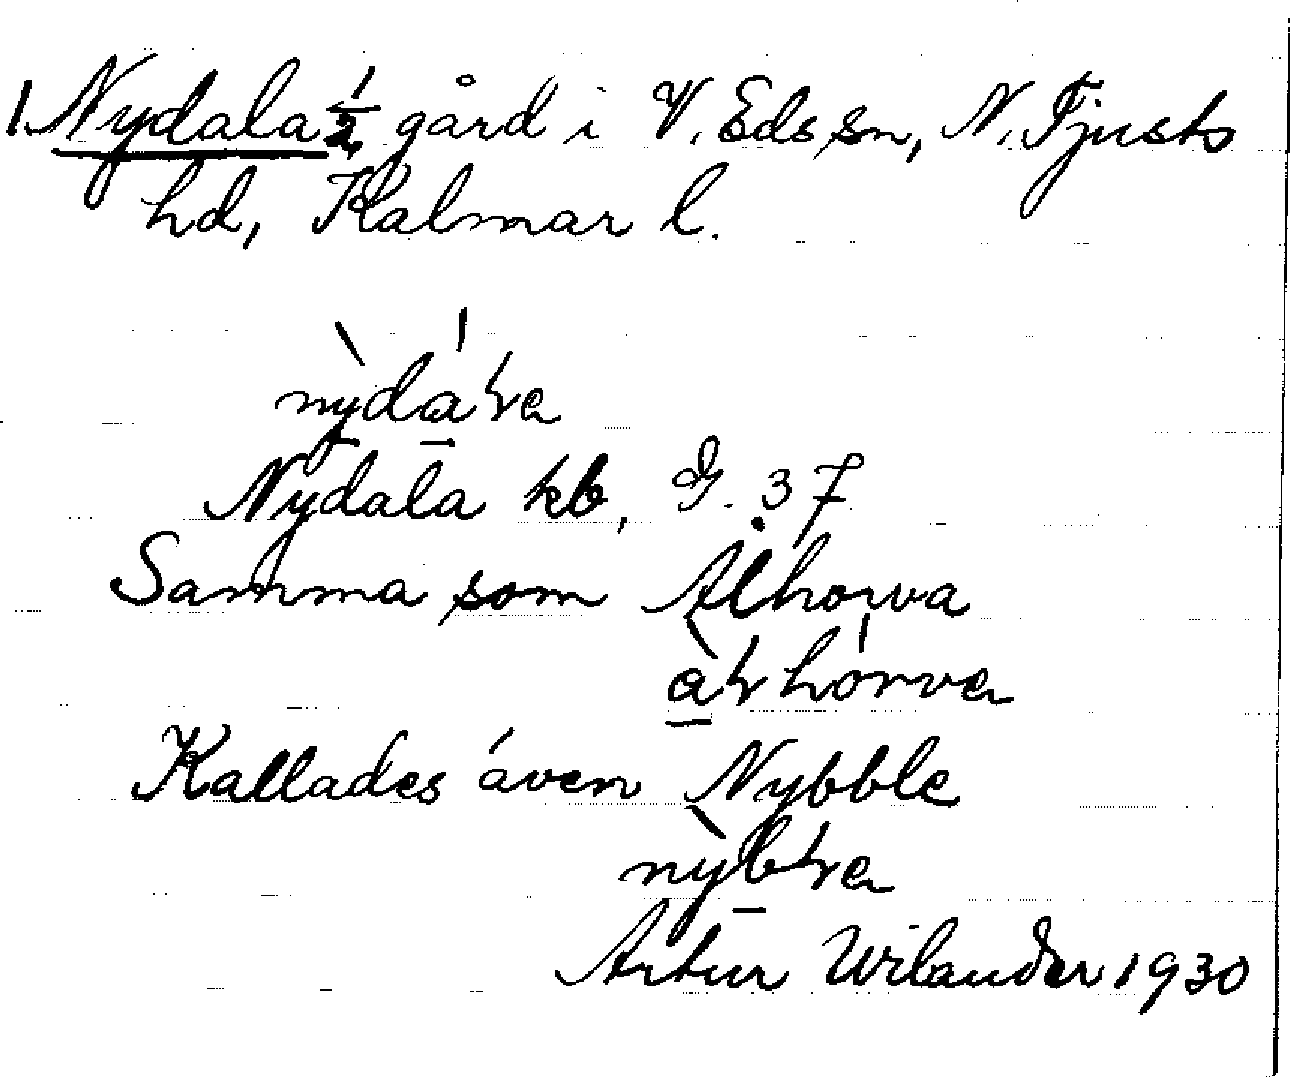 1. Nydala 1/2 gård i V. Eds sn, N. Tjusts
hd, Kalmar l.
nỳdáɽa
Nydala kb, G. 37
Samma som Ålhorva
àɽhórva
Kallades även Nybble
nỳbɽa
Artur Wilander 1930